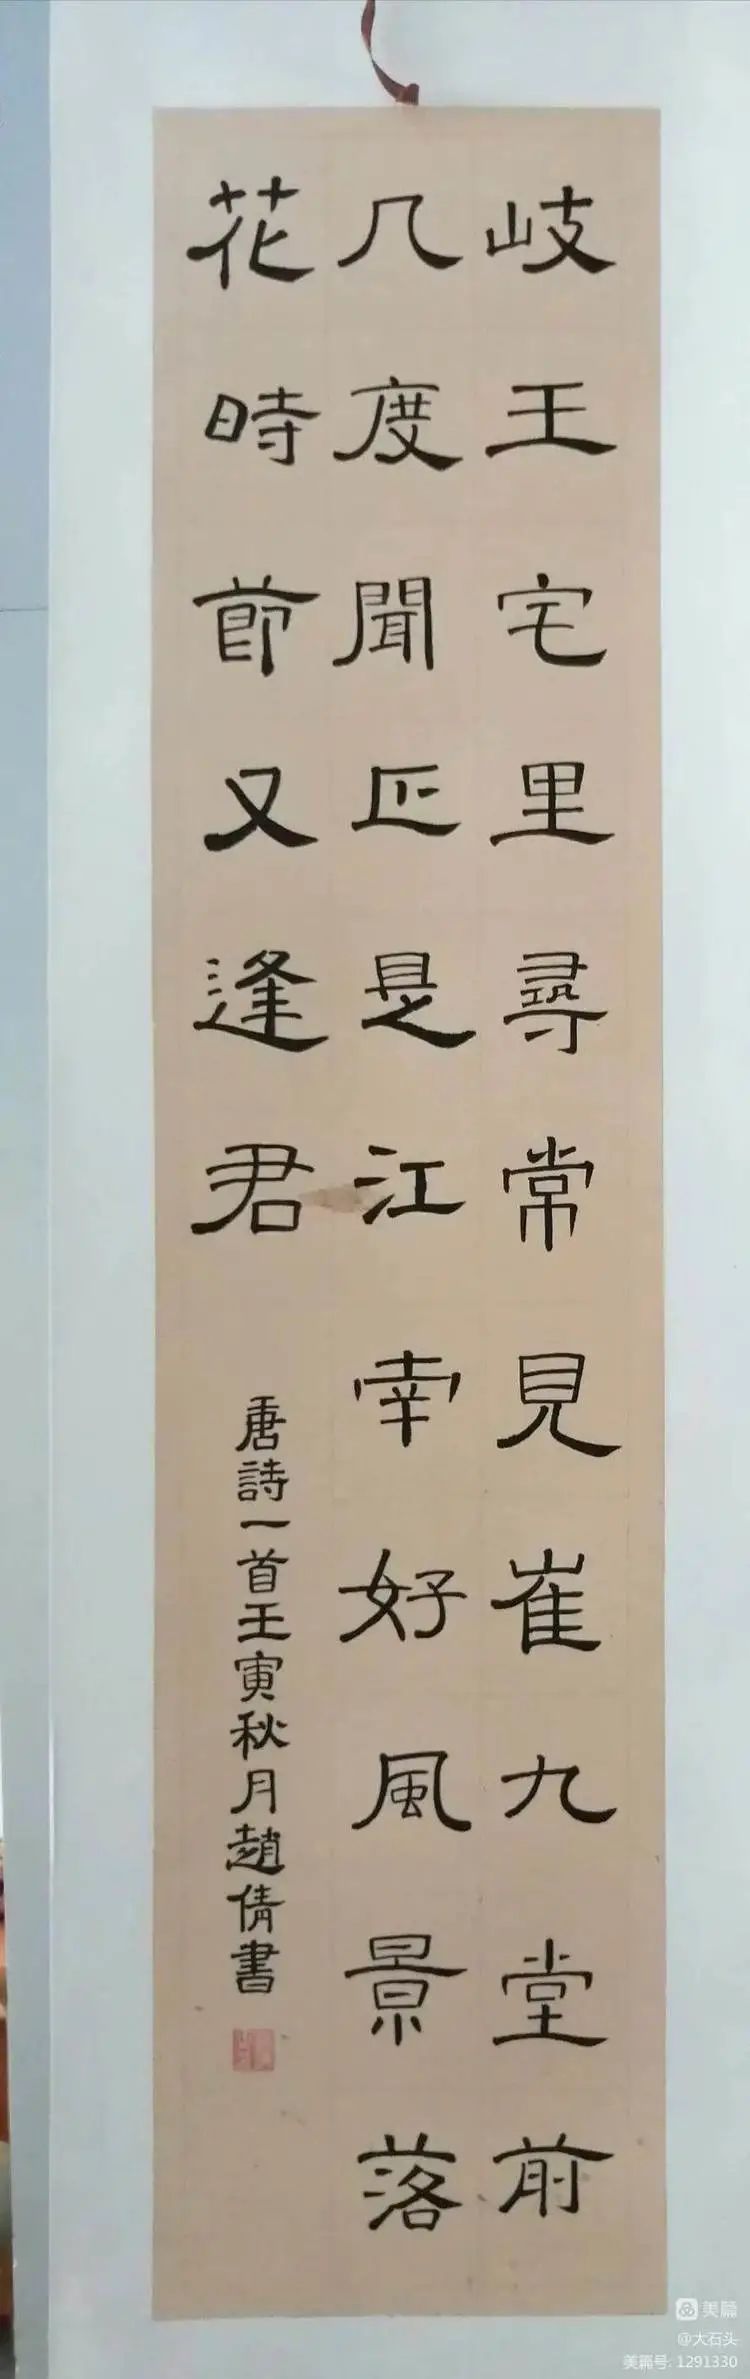 岐王宅里尋常見崔九堂前
几度聞正是江南好風景落
花時節又逢君
唐詩一首壬寅秋月趙倩書
美篇
@大石头
美篇号: 1291330